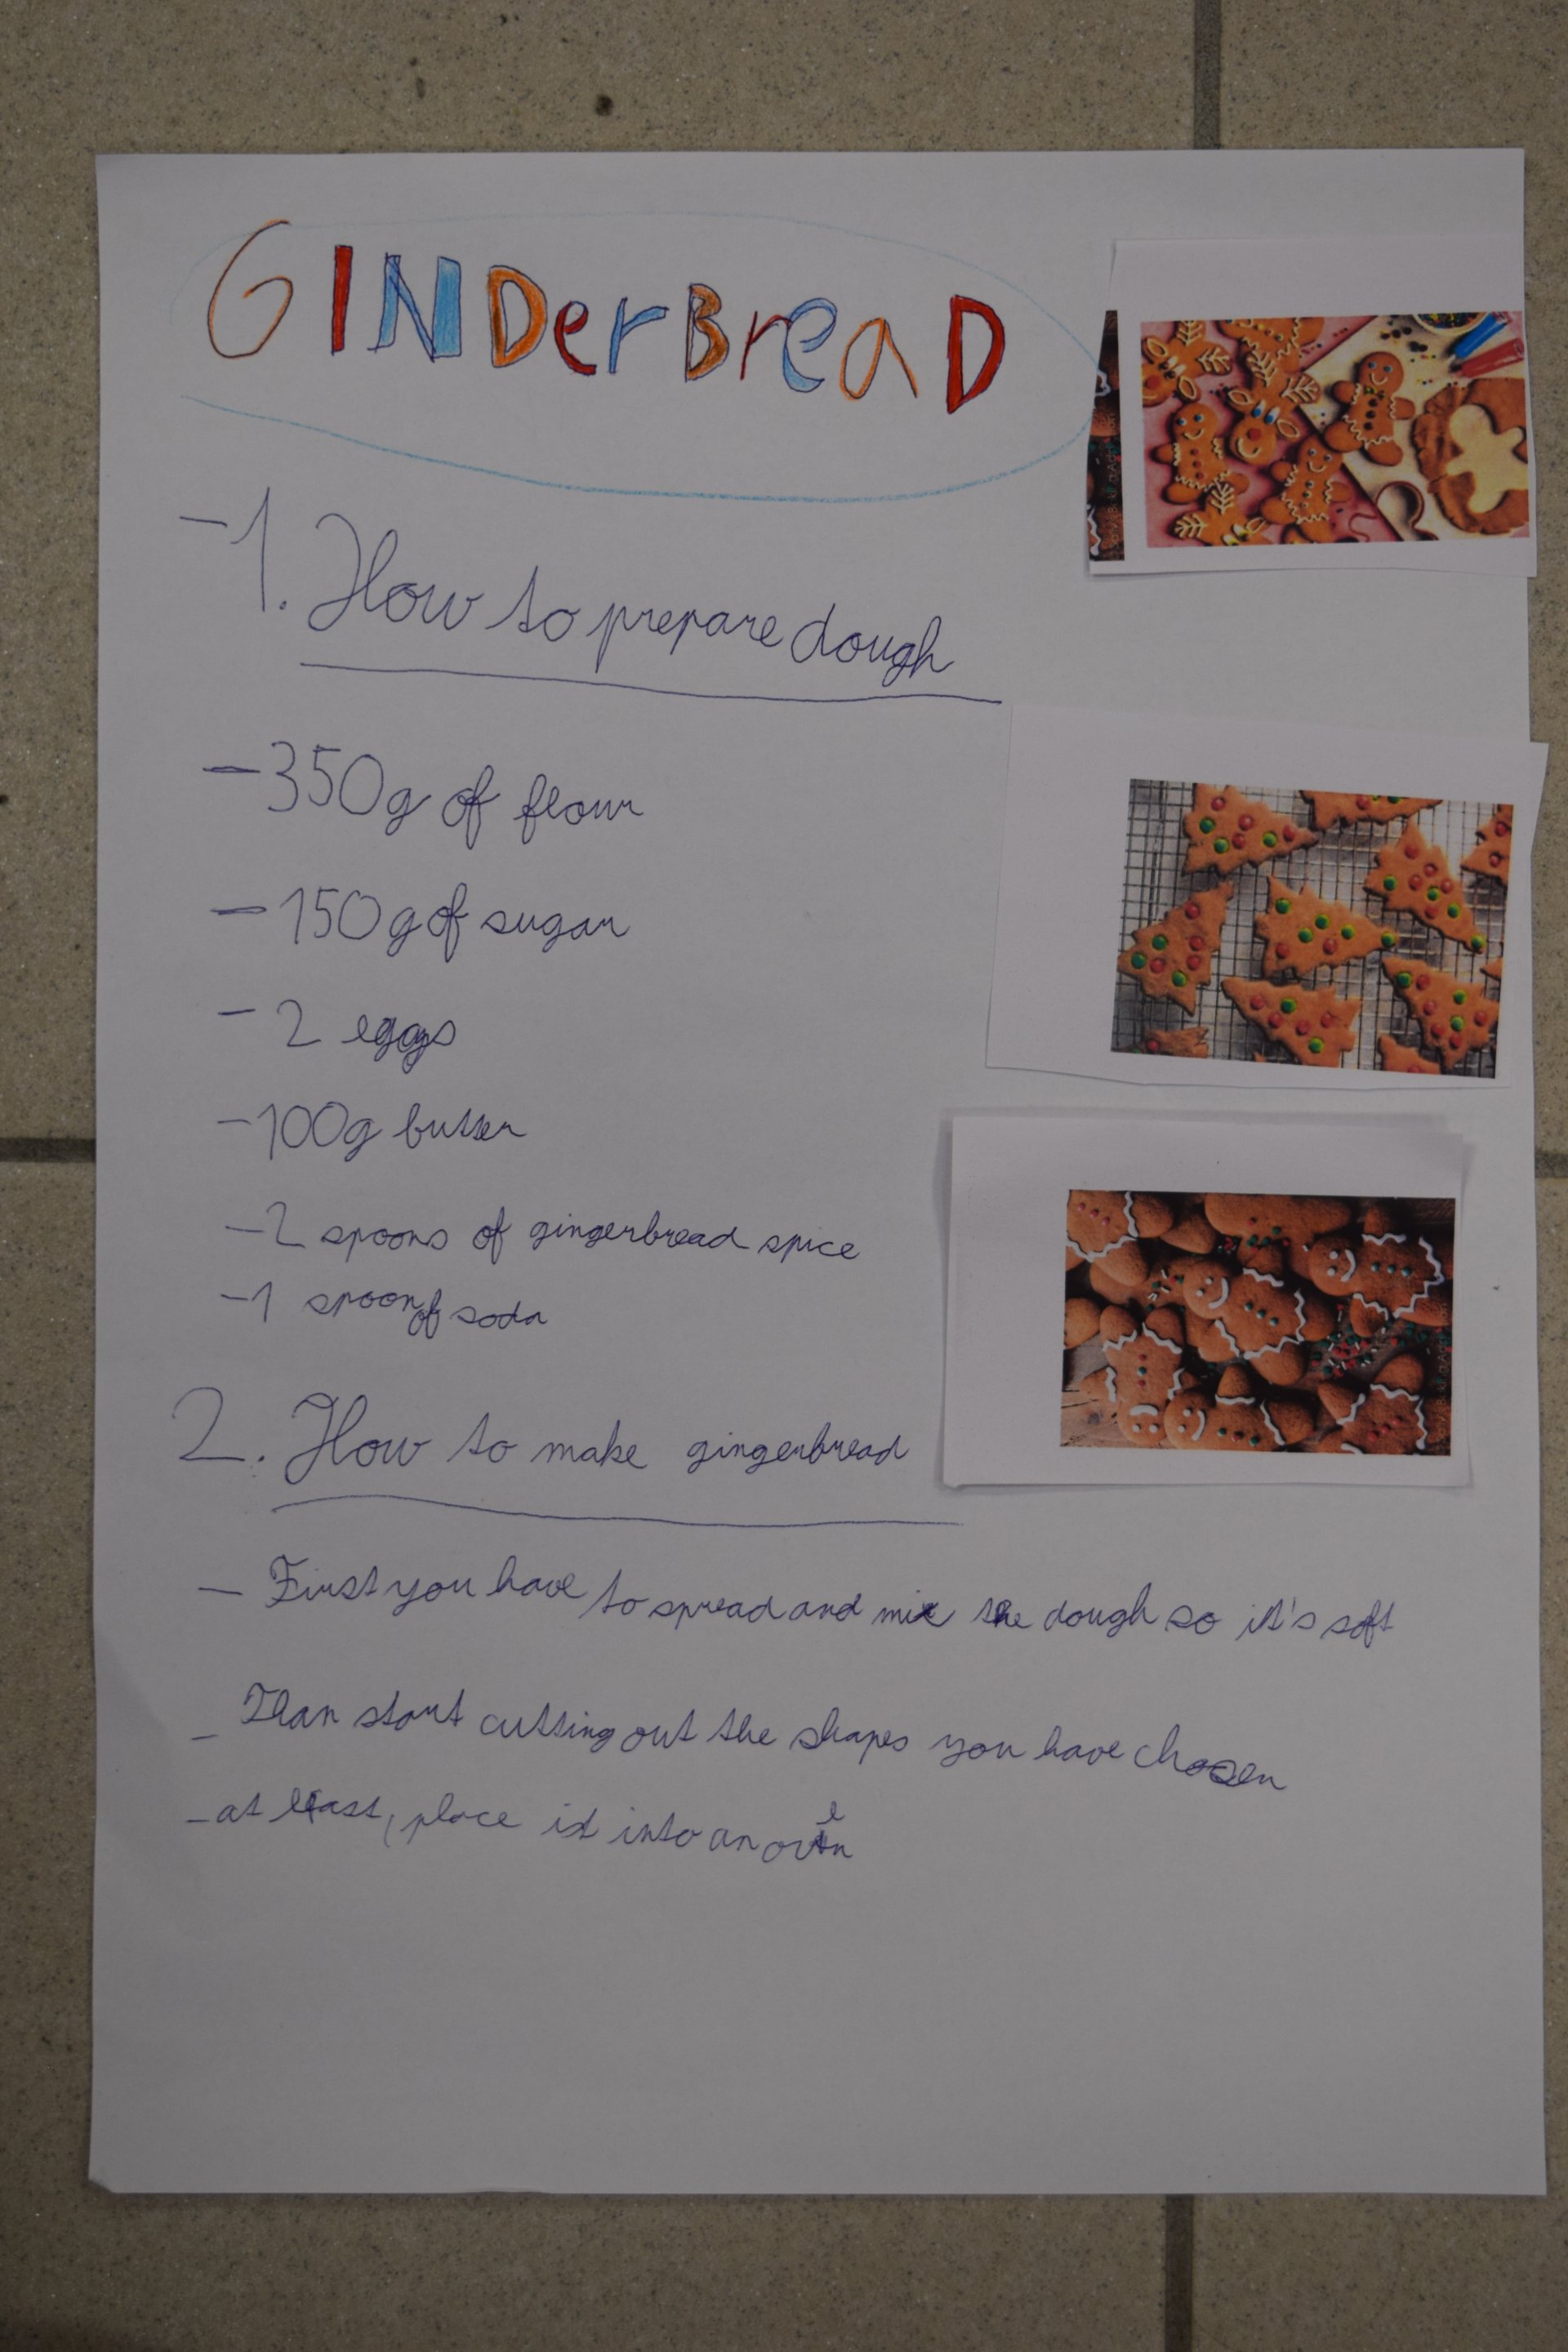 GINDerBreaD
- 1. How to prepare dough
- 350g of flour
- 150g of sugar
- 2 eggs
- 100g butter
- 2 spoons of gingerbread spice
- 1 spoon of soda
2. How to make gingerbread
- First you have to spread and mix the dough so it's soft
- Than start cutting out the shapes you have chosen
- at least, place it into an oven